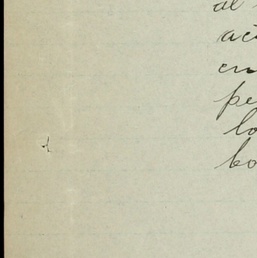 al
aci
en
pe
lo
bo